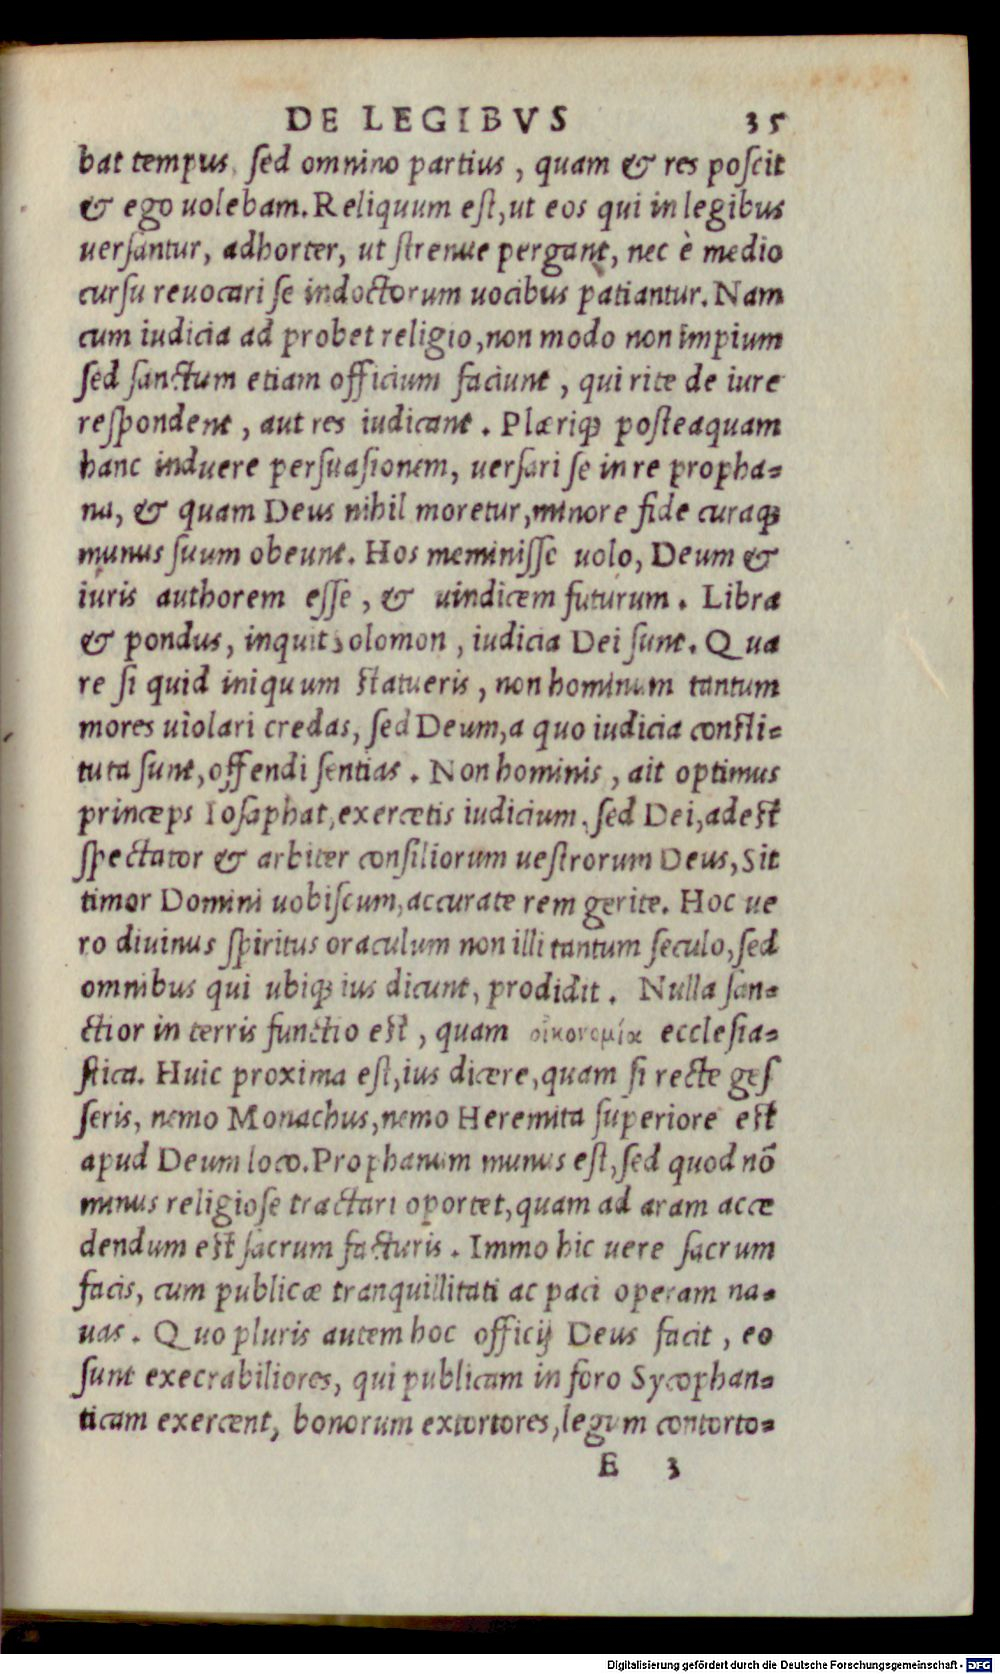 DE LEGIBVS 35
bat tempus, sed omnino partius, quam & res poscit
& ego uolebam. Reliquum est, ut eos qui in legibus
uersantur, adhorter, ut strenue pergant, nec è medio
cursu reuocari se indoctorum uocibus patiantur. Nam
cum iudicia ad probet religio, non modo non impium
sed sanctum etiam officium faciunt, qui rite de iure
respondent, aut res iudicant. Plæriqꝫ posteaquam
hanc induere persuasionem, uersari se in re propha-
na, & quam Deus nihil moretur, minore fide curaqꝫ
munus suum obeunt. Hos meminisse uolo, Deum &
iuris authorem esse, & uindicem futurum. Libra
& pondus, inquit Solomon, iudicia Dei sunt. Qua
re si quid iniquum statueris, non hominum tantum
mores uiolari credas, sed Deum, a quo iudicia consti-
tuta sunt, offendi sentias. Non hominis, ait optimus
princeps Iosaphat, exercetis iudicium, sed Dei, adest
spectator & arbiter consiliorum uestrorum Deus, Sit
timor Domini uobiscum, accurate rem gerite. Hoc ue
ro diuinus spiritus oraculum non illi tantum seculo, sed
omnibus qui ubiqꝫ ius dicunt, prodidit. Nulla san-
ctior in terris functio est, quam οἰκονομία ecclesia-
stica. Huic proxima est, ius dicere, quam si recte ges
seris, nemo Monachus, nemo Heremita superiore est
apud Deum loco. Prophanum munus est, sed quod nō
minus religiose tractari oportet, quam ad aram acce
dendum est sacrum facturis. Immo hic uere sacrum
facis, cum publicæ tranquillitati ac paci operam na-
uas. Quo pluris autem hoc officij Deus facit, eo
sunt execrabiliores, qui publicam in foro Sycophan-
ticam exercent, bonorum extortores, legum contorto-
E 3
Digitalisierung gefördert durch die Deutsche Forschungsgemeinschaft - DFG